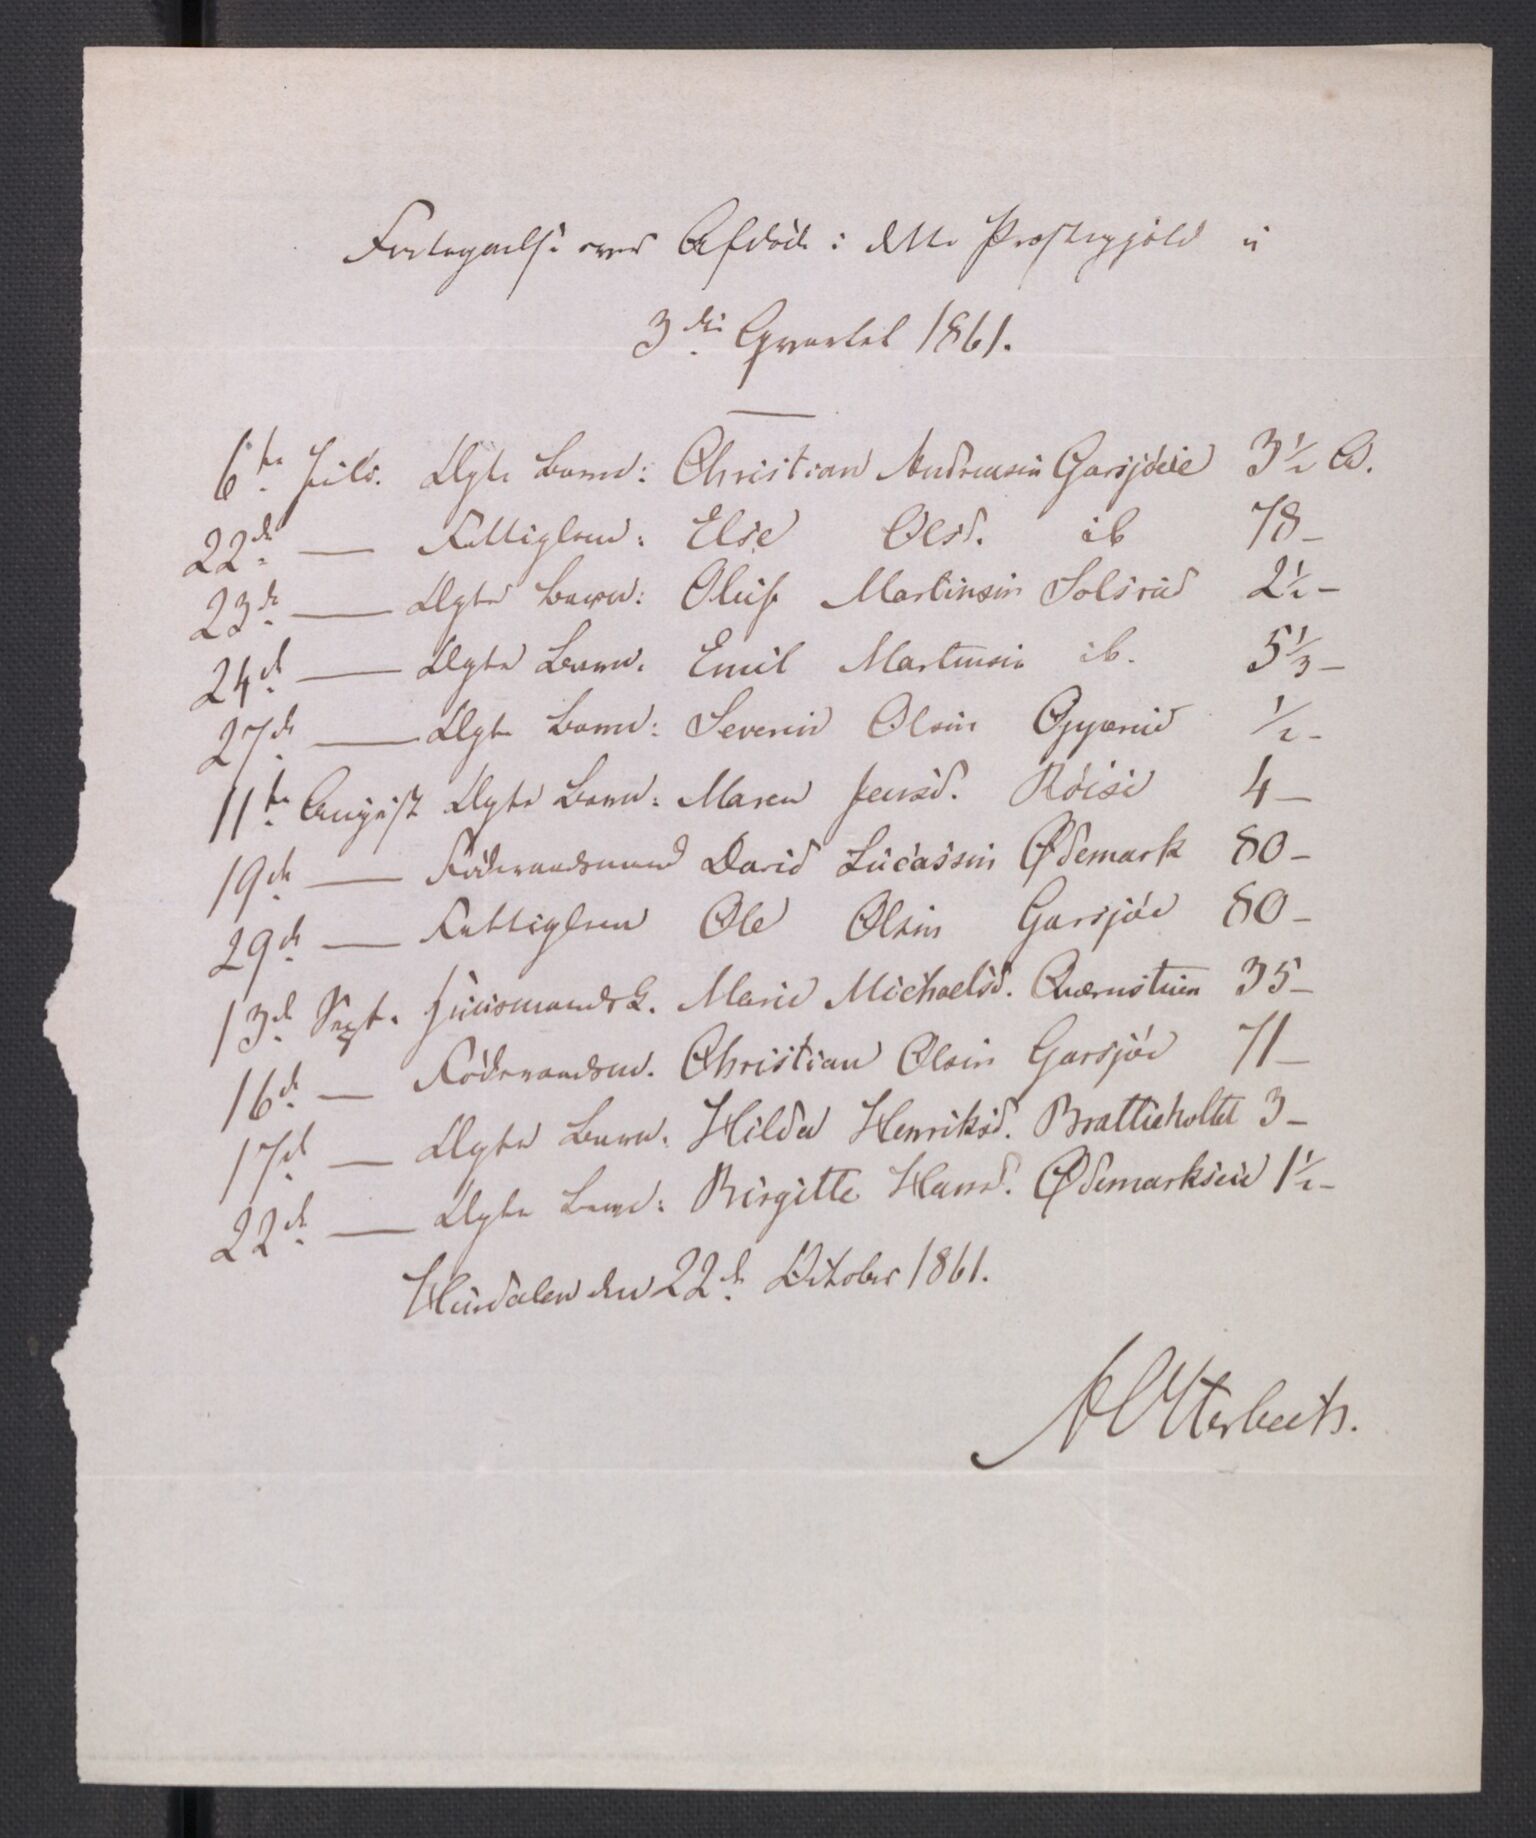 Fortegnelse over Afdöde i dette Præstegjæld i
3die Qvartal 1861.
6te Juli. Ægte Barn: Christian Andreasen Garsjöeie 3½ A.
22de — Fattiglem: Else Olsd. ib 78 –
23de — Ægte Barn: Oluf Martinsen Solsrud 2½ –
24de — Ægte Barn: Emil Martinsen ib. 5⅓ –
27de — Ægte Barn: Severin Olsen ½ –
11te August Ægte Barn: Maren Jensd. Röise 4 –
19de — Föderaadsmand David Lucassen Ødemark 80 –
29de — Fattiglem Ole Olsen Garsjöe 80 –
13de Sept. Huusmandsk. Marie Michaelsd. Quærnstuen 35 –
16de — Föderaadsm. Christian Olsen Garsjöe 71 –
17de — Ægte Barn: Hilda Henriksd. Brattieholtet 3 –
22de — Ægte Barn: Birgitte Hansd. Ødemarkseie 1½ –
Hurdalen den 22de October 1861.
A Otterbech.